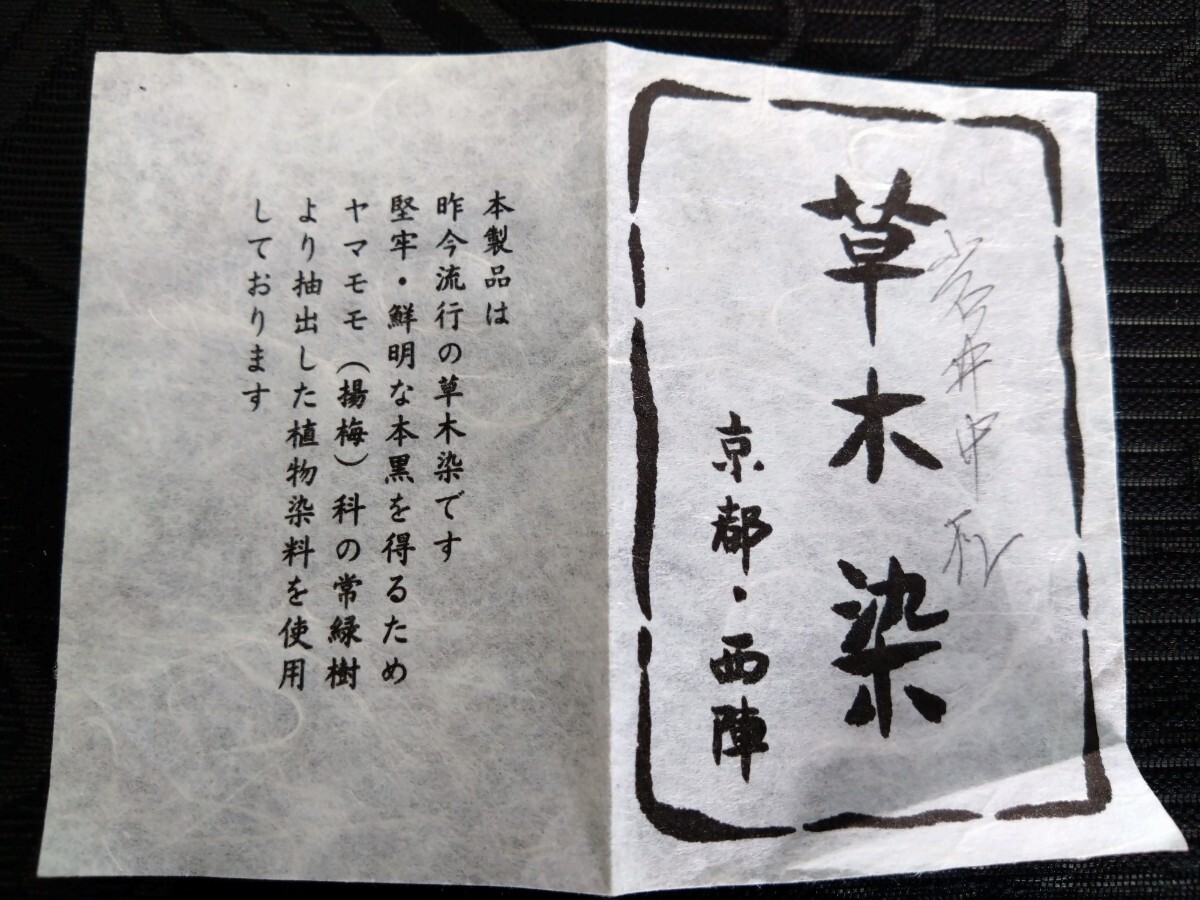 草木染
京都・西陣
本製品は
昨今流行の草木染です
堅牢・鮮明な本黒を得るため
ヤマモモ（楊梅）科の常緑樹
より抽出した植物染料を使用
しております